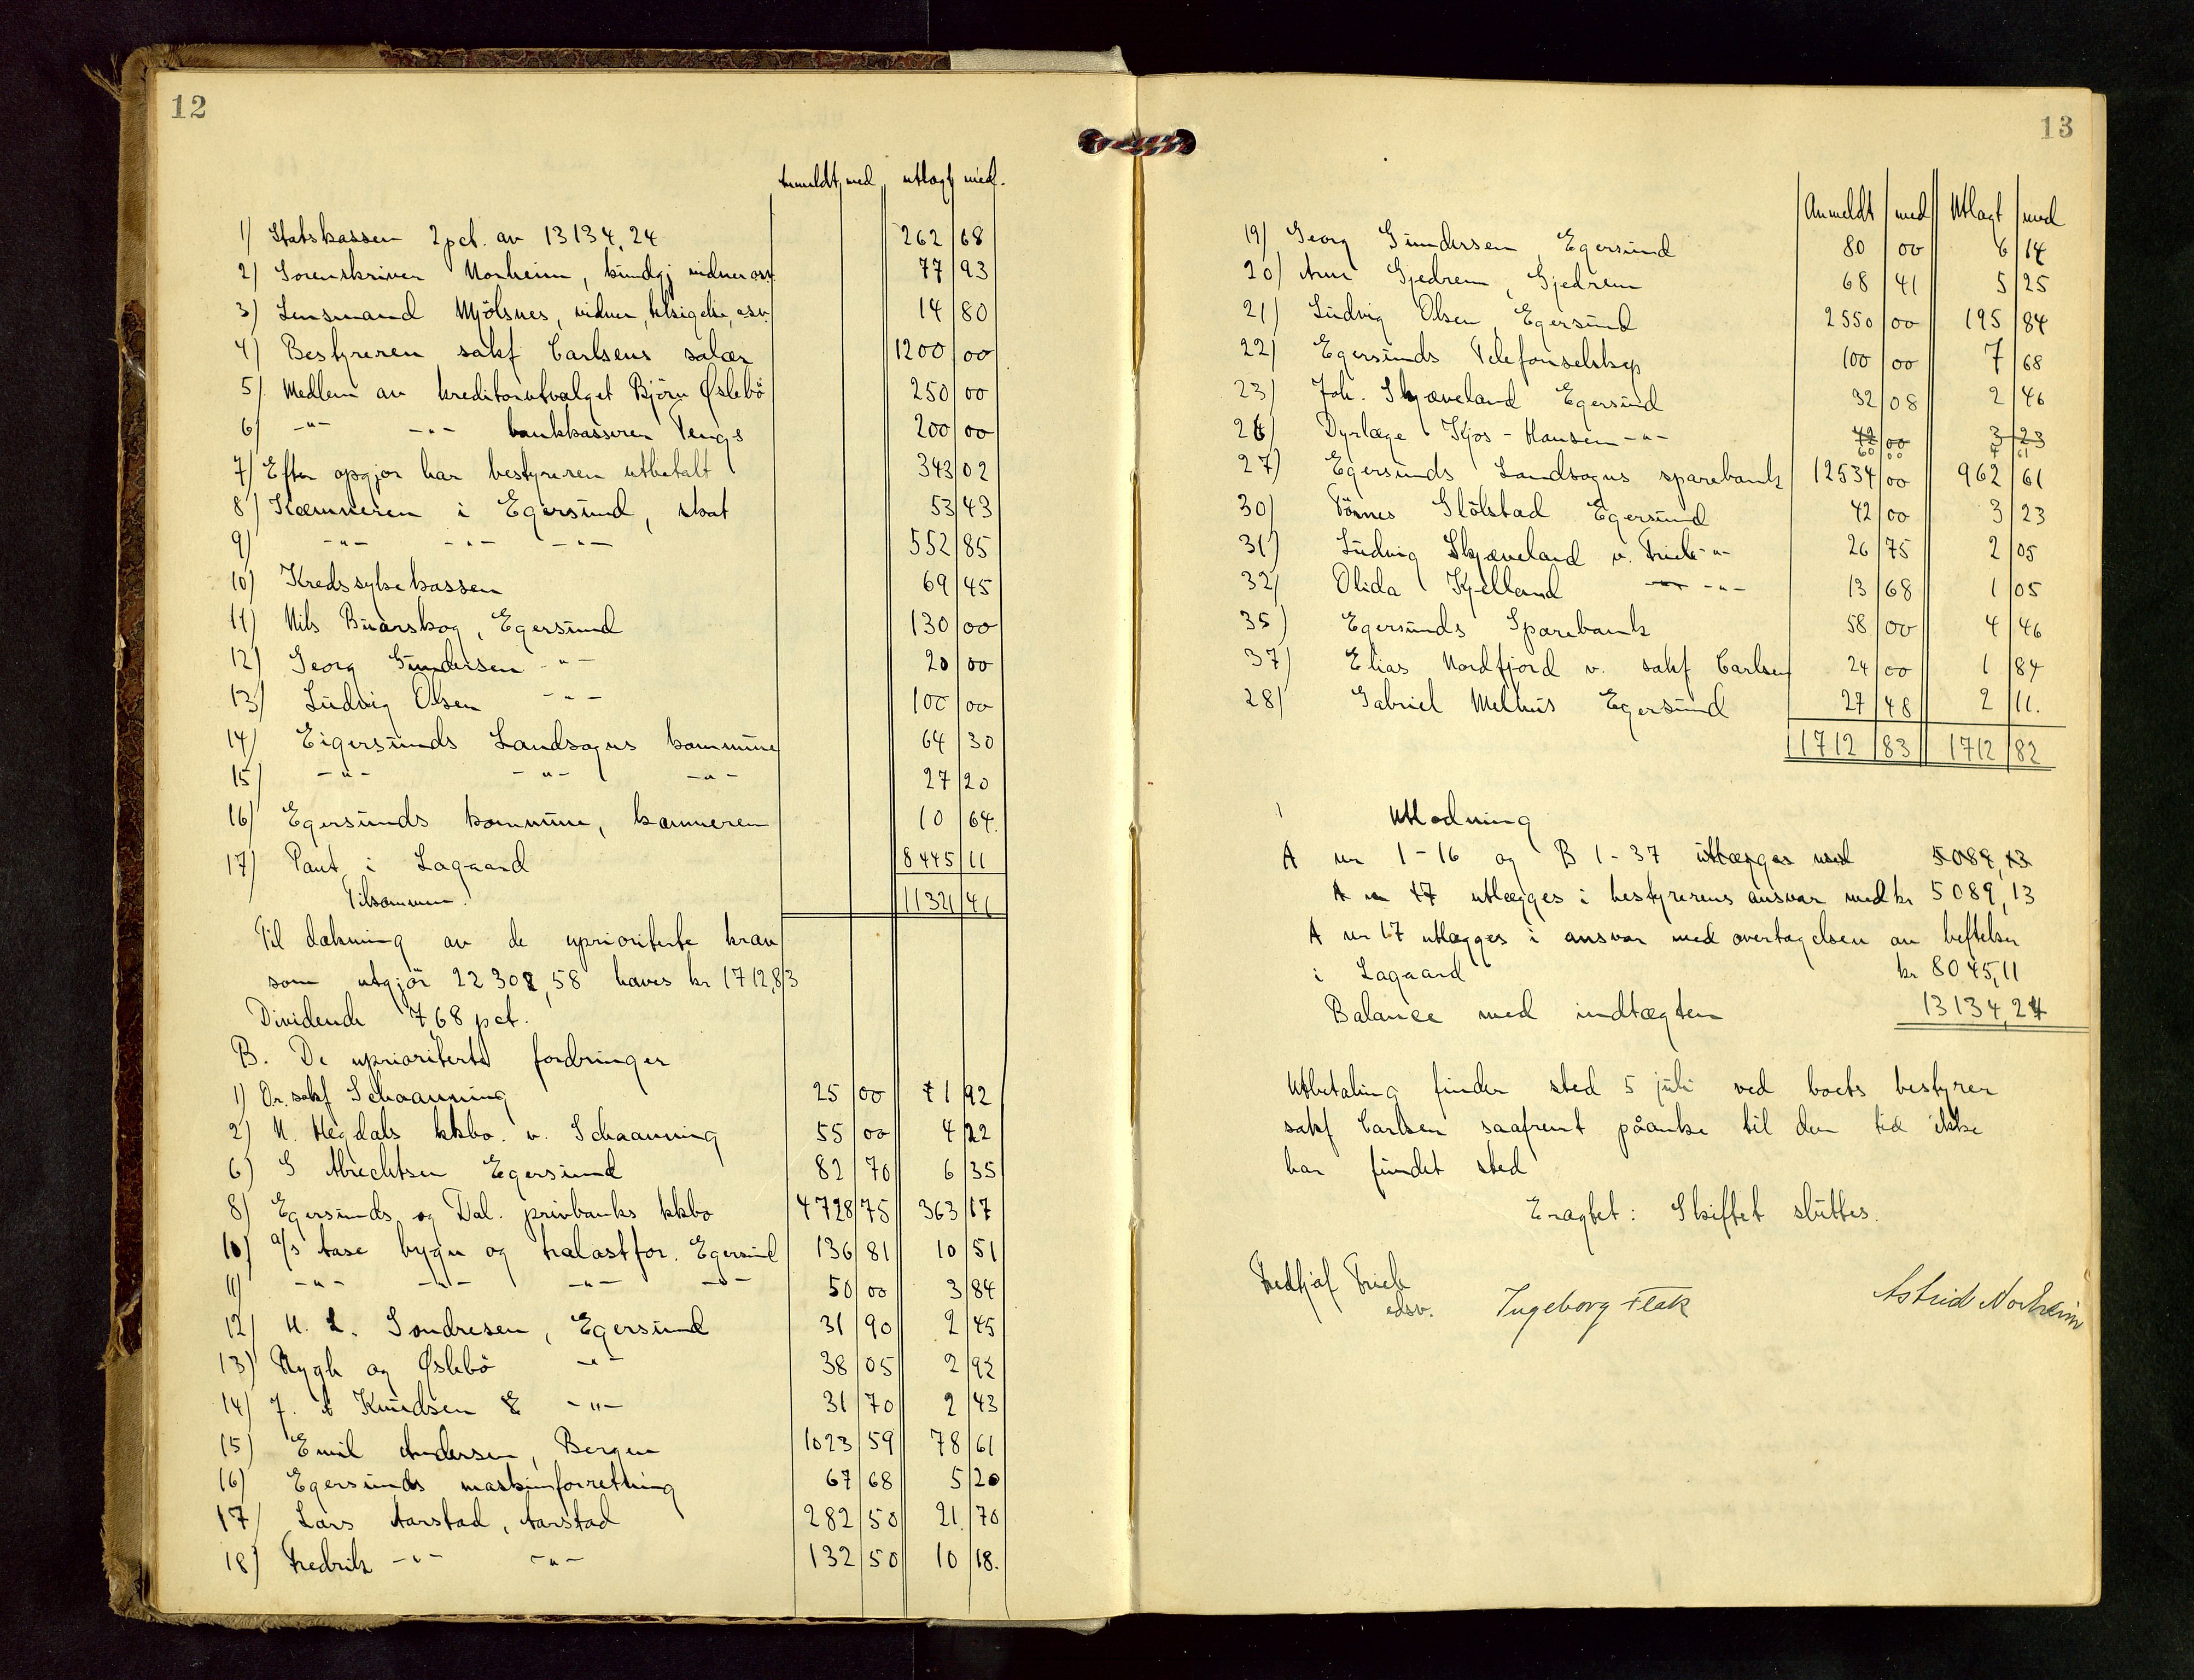 12
Anmeldt med utlagt med.
1) Statskassen 2 pct. av 13134,24 262 68
2) Sorenskriver Norheim, kundgj vidner osv. 77 93
3) Lensmand Mjölsnes, vidner, tilsigelse, osv. 14 80
4) Bestyreren sakf Carlsens salær 1200 00
5) Medlem av kreditorutvalget Björn Øslebö 250 00
6) -"- -"- bankkasserer Tengs 200 00
7) Efter opgjör har bestyreren utbetalt 343 02
8) Kæmneren i Egersund, skat 53 43
9) -"- -"- -"- 552 85
10) Kredssykekassen 69 45
11) Nils Buarskog, Egersund 130 00
12) Georg Gundersen -"- 20 00
13) Ludvig Olsen -"- 100 00
14) Eigersunds Landsogns kommune 64 30
15) -"- -"- -"- 27 20
16) Egersunds kommune, kæmneren 10 64.
17) Pant i Lagaard 8445 11
Tilsammen. 11321 41
Til dækning av de uprioriterte krav
som utgjör 22302,58 haves kr 1712,83
Dividende 7,68 pct.
B. De uprioriterte fordringer
1) Or. sakf Schaanning 25 00 1 92
2) N. Hegdals kkbo. v. Schaanning 55 00 4 22
6) G Abrechtsen Egersund 82 70 6 35
8) Egersunds og Dal. privbanks kkbo 4728 75 363 17
10) a/s Aase bygn og trælastfor. Egersund 136 81 10 51
11) -"- -"- -"- -"- 50 00 3 84
12) N. L. Sondresen, Egersund 31 90 2 45
13) Nygh og Øslebö -"- 38 05 2 92
14) J. A Knudsen E -"- 31 70 2 43
15) Emil Andersen, Bergen 1023 59 78 61
16) Egersunds maskinforretning 67 68 5 20
17) Lars Aarstad, Aarstad 282 50 21. 70
18) Fredrik -"- -"- 132 50 10 18.
13
Anmeldt med Utlagt med
19) Georg Gundersen, Egersund 80 00 6 14
20) Arne Gjedrem, Gjedrem 68 41 5 25
21) Ludvig Olsen, Egersund 2550 00 195 84
22) Egersunds Telefonselskap 100 00 7 68
23) Joh. Skjæveland Egersund 32 08 2 46
26) Dyrlæge Kjos-Hansen -"- 42 00 3 23
60 00 4 61
27) Egersunds Landsogns sparebank 12534 00 962 61
30) Tönnes Stölstad Egersund 42 00 3 23
31) Ludvig Skjæveland v. Friele -"- 26 75 2 05
32) Olida Kjelland -"- -"- 13 68 1 05
35) Egersunds Sparebank 58 00 4 46
37) Elias Nordfjord v. sakf Carlsen 24 00 1 84
28) Gabriel Melhus Egersund 27 48 2 11.
11712 83 1712 82
Utlodning
A nr 1-16 og B 1-37 utlægges med 5089,13
A nr 17 utlægges i bestyrerens ansvar med kr 5089,13
A nr 17 utlægges i ansvar med overtagelsen av heftelser
i Lagaard kr 8045,11
Balance med indtægten 13134,24
Utbetaling finder sted 5 juli ved boets bestyrer
sakf Carlsen saafremt påanke til den tid ikke
har fundet sted
Eragtet: Skiftet sluttes.
Fredthjof Friele
edsv.
Ingeborg Flak
Astrid Norheim